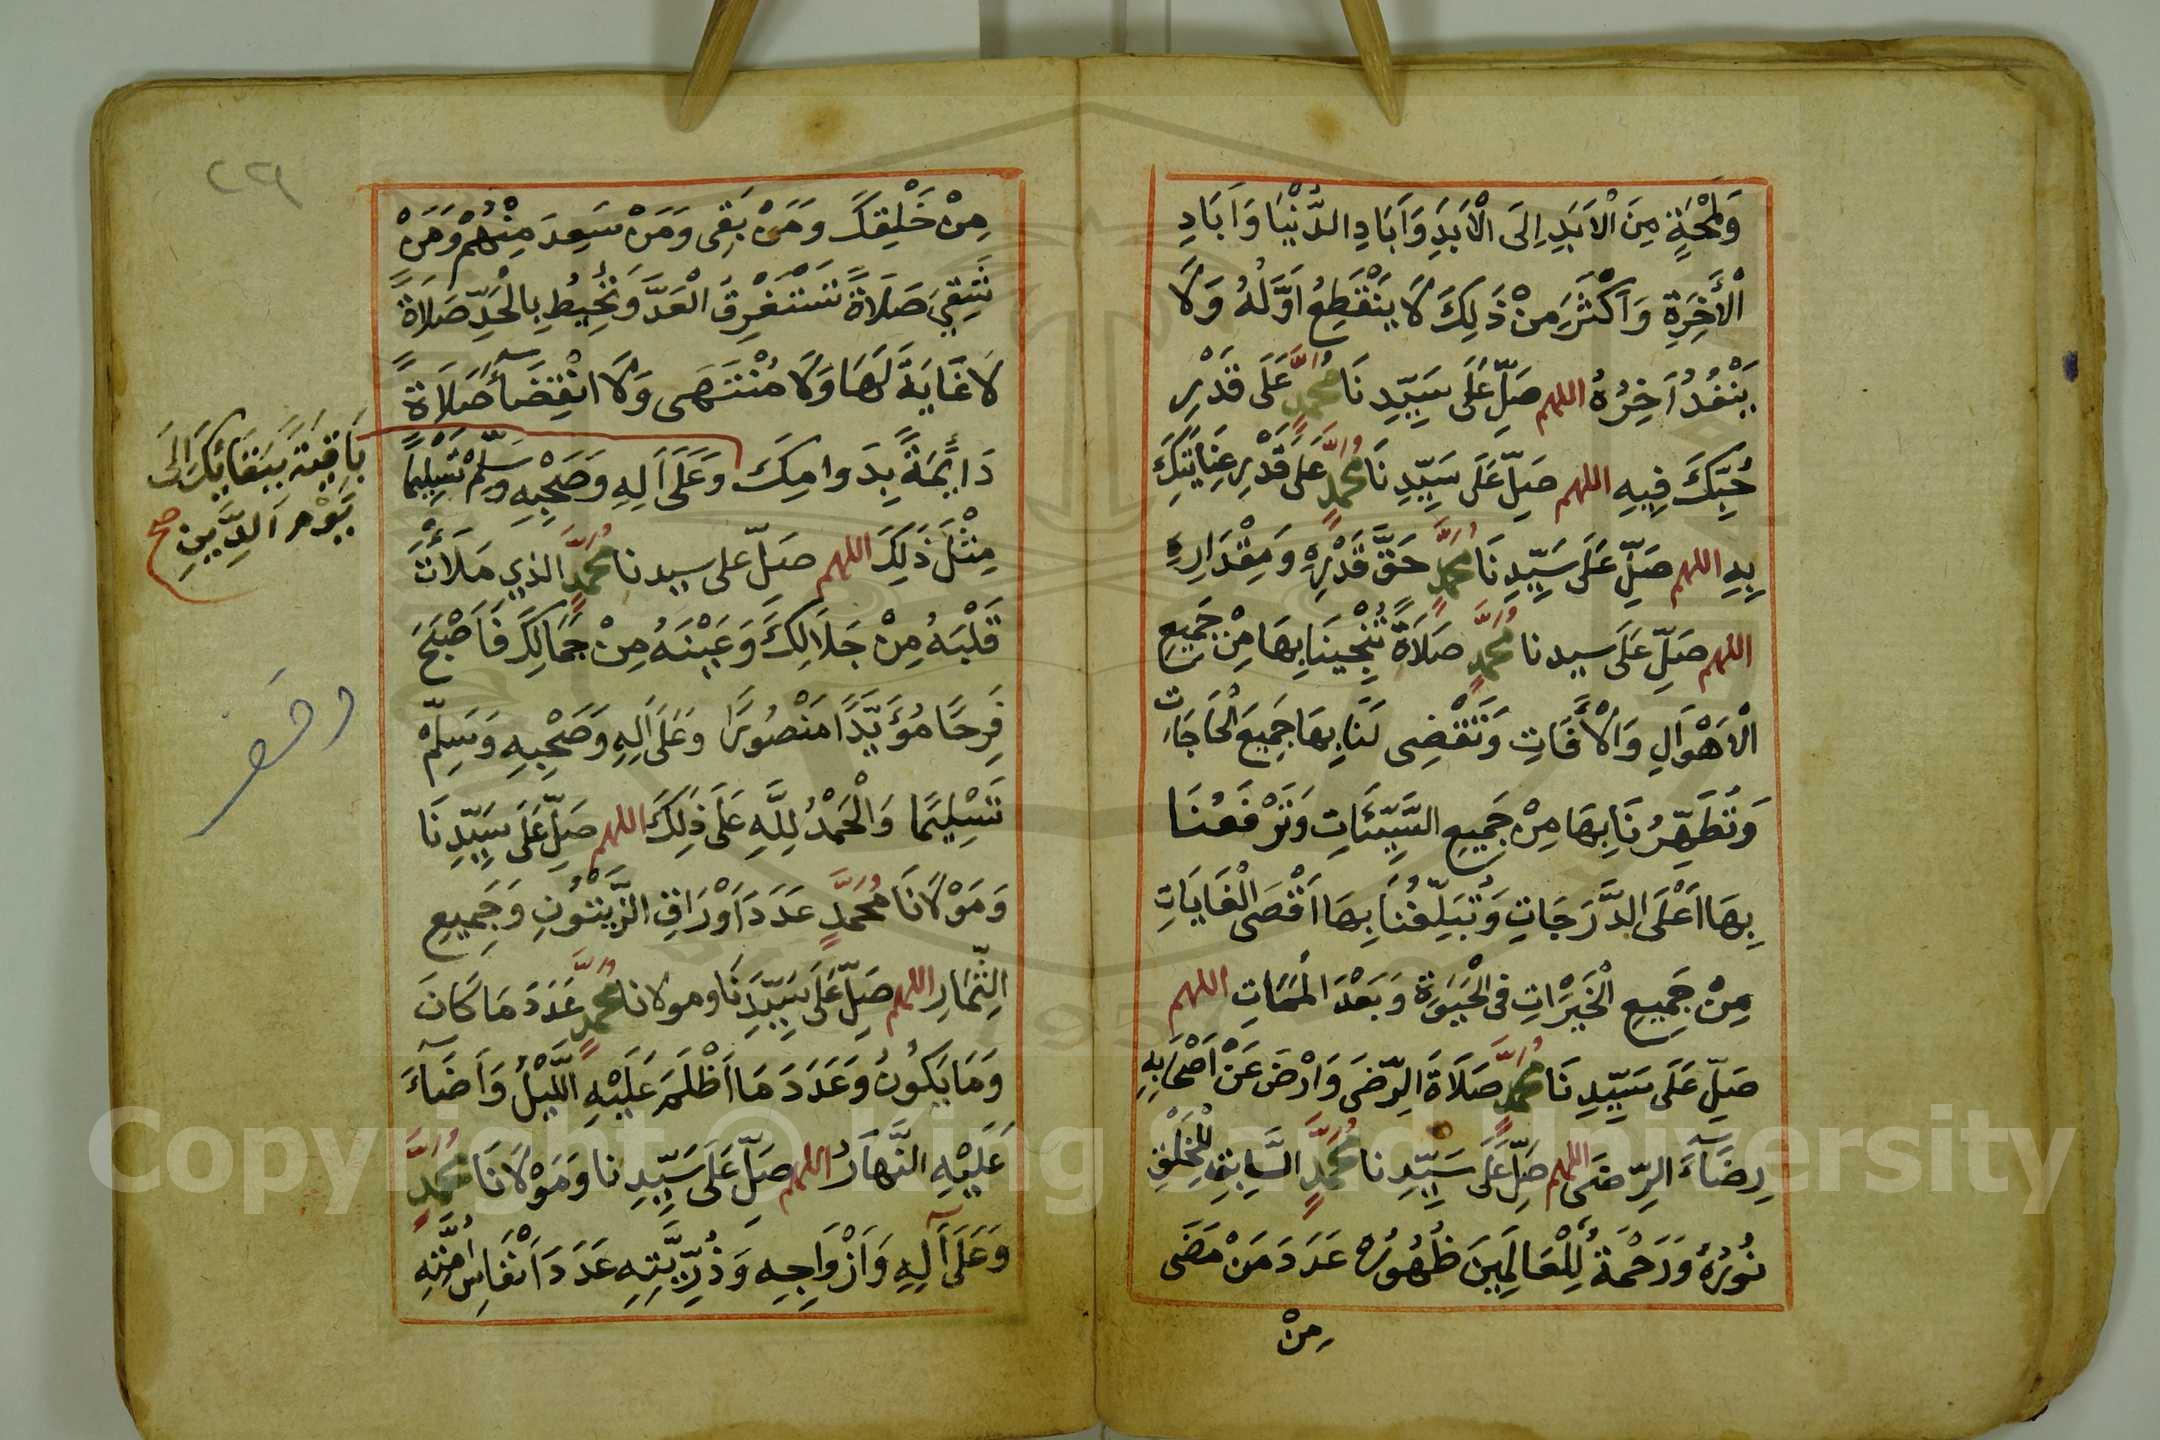 وَلَمْحَةٍ مِنَ الْاَبَدِ اِلَى الْاَبَدِ وَاَبَادِ الدُّنْيَا وَاَبَادِ
الْاٰخِرَةِ وَاَكْثَرَ مِنْ ذَلِكَ لَا يَنْقَطِعُ اَوَّلُهُ وَلَا
يَنْفَدُ اٰخِرُهُ اللهم صَلِّ عَلَى سَيِّدِنَا مُحَمَّدٍ عَلَى قَدْرِ
حُبِّكَ فِيهِ اللهم صَلِّ عَلَى سَيِّدِنَا مُحَمَّدٍ عَلَى قَدْرِ عِنَايَتِكَ
بِهِ اللهم صَلِّ عَلَى سَيِّدِنَا مُحَمَّدٍ حَقَّ قَدْرِهِ وَمِقْدَارِهِ
اللهم صَلِّ عَلَى سيدنا مُحَمَّدٍ صَلَاةً تُنْجِينَا بِهَا مِنْ جَمِيعِ
الْاَهْوَالِ وَالْاٰفَاتِ وَتَقْضِى لَنَا بِهَا جَمِيعَ الْحَاجَاتِ
وَتُطَهِّرُنَا بِهَا مِنْ جَمِيعِ السَّيِّئَاتِ وَتَرْفَعُنَا
بِهَا اَعْلَى الدَّرَجَاتِ وَتُبَلِّغُنَا بِهَا اَقْصَى الْغَايَاتِ
مِنْ جَمِيعِ الْخَيْرَاتِ فِى الْحَيَوةِ وَبَعْدَ الْمَمَاتِ اللهم
صَلِّ عَلَى سَيِّدِنَا مُحَمَّدٍ صَلَاةَ الرِّضَى وَارْضَ عَنْ اَصْحَابِهِ
رِضَآءَ الرِّضَى اللهم صَلِّ عَلَى سَيِّدِنا مُحَمَّدٍ السَّابِقِ لِلْخَلْقِ
نُورُهُ وَرَحْمَةٌ لِلْعَالَمِينَ ظُهُورُهُ عَدَدَ مَنْ مَضَى
مِنْ
٢٢٩
مِنْ خَلْقِكَ وَمَنْ بَقِى وَمَنْ سَعِدَ مِنْهُمْ وَمَنْ
شَقِيَ صَلَاةً تَسْتَغْرِقُ الْعَدَّ وَتُحِيطُ بِالْحَدِّ صَلَاةً
لَا غَايَةَ لَهَا وَلَا مُنْتَهَى وَلَا انْقِضَآءَ صَلَاةً
دَائِمَةً بِدَوامِكَ وَعَلَى اٰلِهِ وَصَحْبِهِ وَسَلِّمْ تَسْلِيمًا
بَاقِيَةً بِبَقَائِكَ اِلَى
يَوْمِ الدِّينِ صح
مِثْلَ ذَلِكَ اللهم صَلِّ على سيدنا مُحَمَّدٍ الذي مَلَأْتَ
قَلْبَهُ مِنْ جَلَالِكَ وَعَيْنَهُ مِنْ جَمَالِكَ فَاَصْبَحَ
فَرِحًا مُؤَيَّدًا مَنْصُورًا وَعَلَى اٰلِهِ وَصَحْبِهِ وَسَلِّمْ
تَسْلِيمًا وَالْحَمْدُ لِلَّهِ عَلَى ذَلِكَ اللهم صَلِّ عَلَى سَيِّدِنَا
وَمَوْلَانَا مُحَمَّدٍ عَدَدَ اَوْرَاقِ الزَّيْتُونِ وَجَمِيعِ
الثِّمَارِ اللهم صَلِّ عَلَى سَيِّدِنَا ومولانا مُحَمَّدٍ عَدَدَ مَا كَانَ
وَمَا يَكُونُ وَعَدَدَ مَا اَظْلَمَ عَلَيْهِ اللَّيْلُ وَاَضَآءَ
عَلَيْهِ النَّهَارُ اللهم صَلِّ عَلَى سَيِّدِنا وَمَوْلَانَا مُحَمَّدٍ
وَعَلَى آلِهِ وَاَزْوَاجِهِ وَذُرِّيَّتِهِ عَدَدَ اَنْفَاسِ اُمَّتِهِ
وقف
Copyright © King Saud University
1957